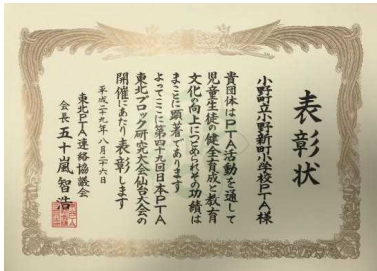 表彰状
小野町立小野新町小学校PTA様
貴団体はPTA活動を通して
児童生徒の健全育成と教育
文化の向上につとめられその功績は
まことに顕著であります
よってここに第四十九回日本PTA
東北ブロック研究大会仙台大会の
開催にあたり表彰します
平成二十九年八月二十六日
東北PTA連絡協議会
会長 五十嵐智浩